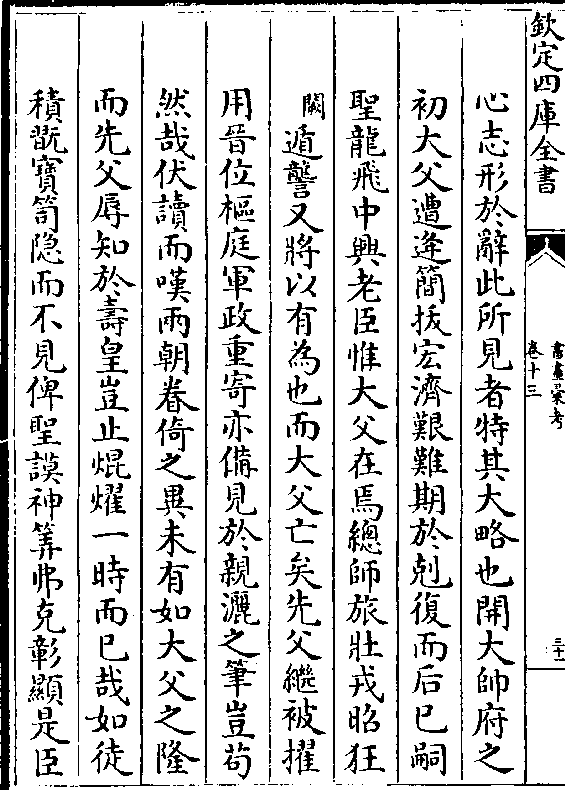 欽定四庫全書
書畫彙考
卷十三
三十一
心志形於辭此所見者特其大略也開大帥府之
初大父遭逄簡拔宏濟艱難期於剋復而后已嗣
聖龍飛中興老臣惟大父在焉總師旅壯戎昭狂
闕遁讋又將以有為也而大父亡矣先父繼被擢
用晉位樞庭軍政重寄亦備見於親灑之筆豈苟
然哉伏讀而嘆兩朝眷倚之異未有如大父之隆
而先父辱知於壽皇豈止焜燿一時而已哉如徒
積翫寶笥隐而不見俾聖謨神筭弗克彰顯是臣